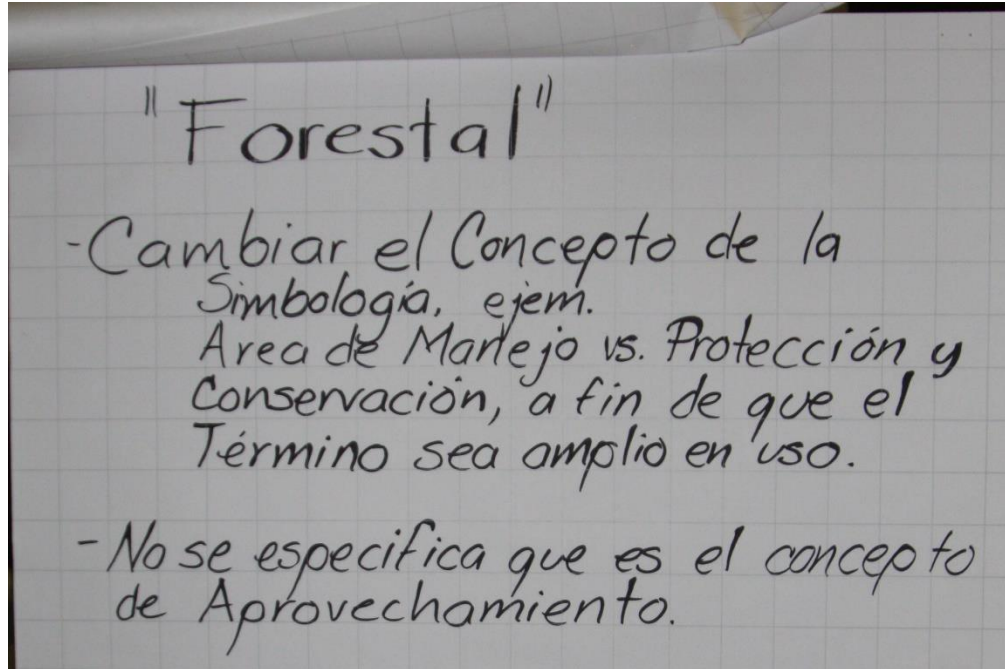 "Forestal"
-Cambiar el Concepto de la
Simbología, ejem.
Area de Manejo vs. Protección y
Conservación, a fin de que el
Término sea amplio en uso.
- No se especifica que es el concepto
de Aprovechamiento.